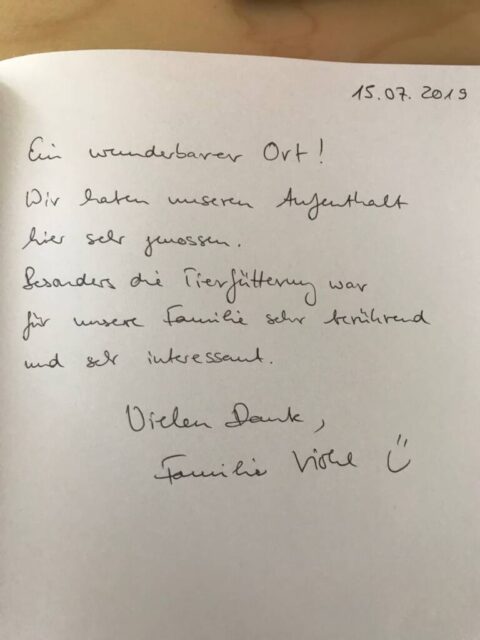 15.07.2019
Ein wunderbarer Ort!
Wir haben unseren Aufenthalt
hier sehr genossen.
Besonders die Tierfütterung war
für unsere Familie sehr berührend
und sehr interessant.
Vielen Dank,
Familie